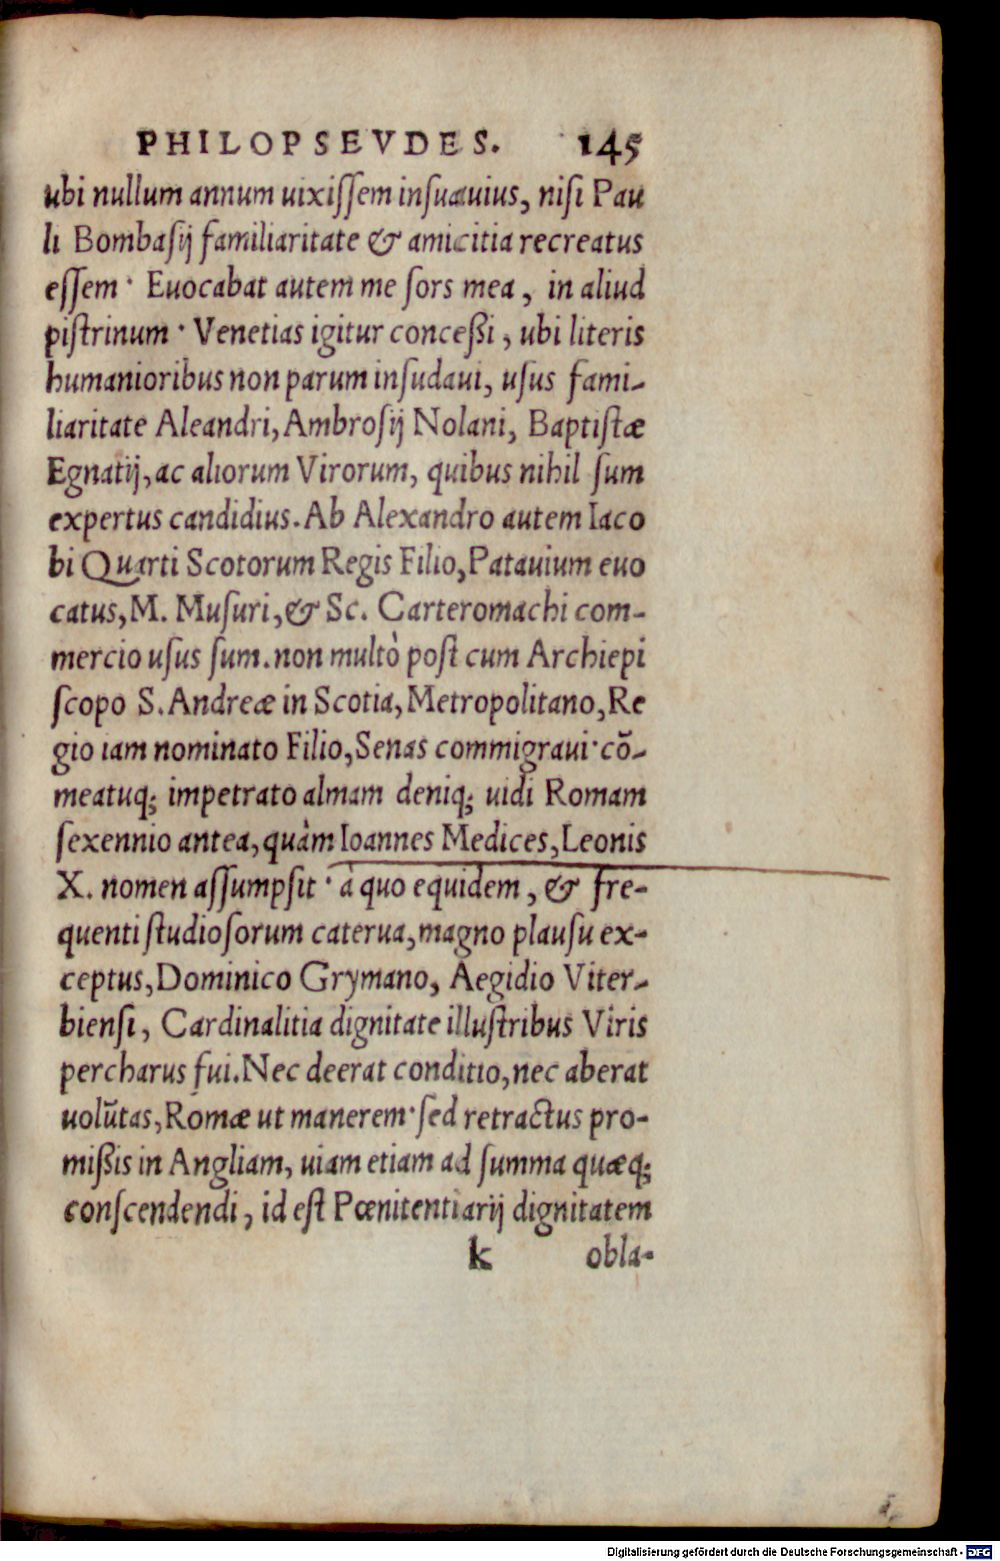 PHILOPSEVDES. 145
ubi nullum annum uixiſſem inſuauius, niſi Pau
li Bombaſij familiaritate & amicitia recreatus
eſſem· Euocabat autem me ſors mea, in aliud
piſtrinum· Venetias igitur conceßi, ubi literis
humanioribus non parum inſudaui, uſus fami-
liaritate Aleandri, Ambroſij Nolani, Baptiſtæ
Egnatij, ac aliorum Virorum, quibus nihil ſum
expertus candidius. Ab Alexandro autem Iaco
bi Quarti Scotorum Regis Filio, Patauium euo
catus, M. Muſuri, & Sc. Carteromachi com-
mercio uſus ſum. non multò poſt cum Archiepi
ſcopo S. Andreæ in Scotia, Metropolitano, Re
gio iam nominato Filio, Senas commigraui· cō-
meatuq; impetrato almam deniq; uidi Romam
ſexennio antea, quàm Ioannes Medices, Leonis
X. nomen aſſumpſit· à quo equidem, & fre-
quenti ſtudioſorum caterua, magno plauſu ex-
ceptus, Dominico Grymano, Aegidio Viter-
bienſi, Cardinalitia dignitate illuſtribus Viris
percharus fui. Nec deerat conditio, nec aberat
uolūtas, Romæ ut manerem· ſed retractus pro-
mißis in Angliam, uiam etiam ad ſumma quæq;
conſcendendi, id eſt Pœnitentiarij dignitatem
k obla-
Digitalisierung gefördert durch die Deutsche Forschungsgemeinschaft - DFG